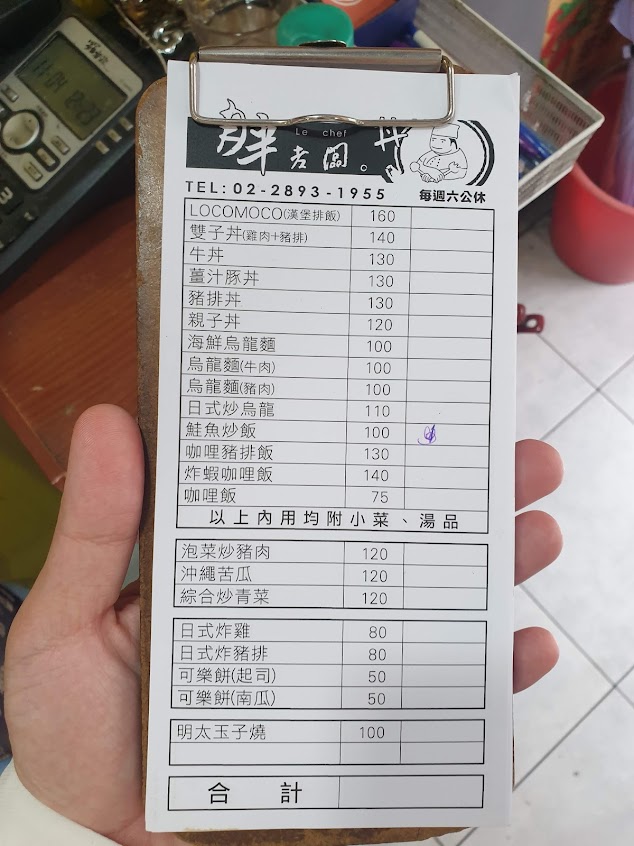 11-04 12:23
Le chef
胖老闆。丼
TEL: 02-2893-1955 每週六公休
LOCOMOCO(漢堡排飯) 160
雙子丼(雞肉+豬排) 140
牛丼 130
薑汁豚丼 130
豬排丼 130
親子丼 120
海鮮烏龍麵 100
烏龍麵(牛肉) 100
烏龍麵(豬肉) 100
日式炒烏龍 110
鮭魚炒飯 100
咖哩豬排飯 130
炸蝦咖哩飯 140
咖哩飯 75
以上內用均附小菜、湯品
泡菜炒豬肉 120
沖繩苦瓜 120
綜合炒青菜 120
日式炸雞 80
日式炸豬排 80
可樂餅(起司) 50
可樂餅(南瓜) 50
明太玉子燒 100
合計